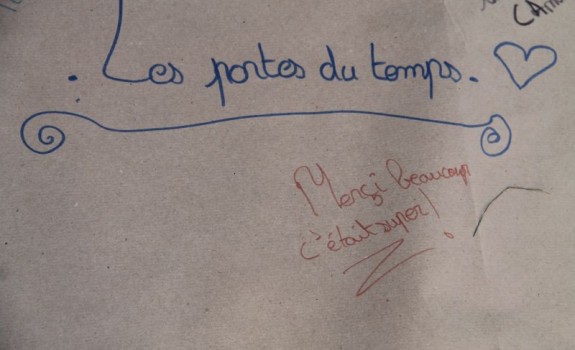 . Les portes du temps.
Merçi beaucoup
c'était super!